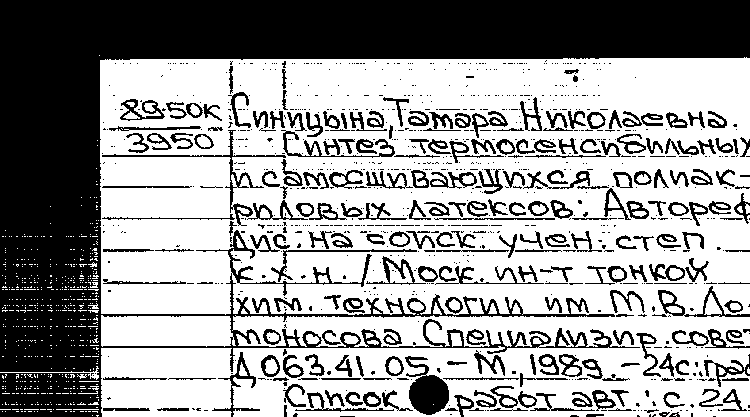 89-50К
3950
Синицына, Тамара Николаевна.
Синтез термосенсибильных
и самосшивающихся полиак-
риловых латексов: Автореф
дис. на соиск. учен. степ.
к.х.н. / Моск. ин-т тонкой
хим. технологии им. М.В. Ло-
моносова. Специализир. сове
Д 063.41.05. - М., 1989. - 24с.: граф
Список работ авт.: с. 24.